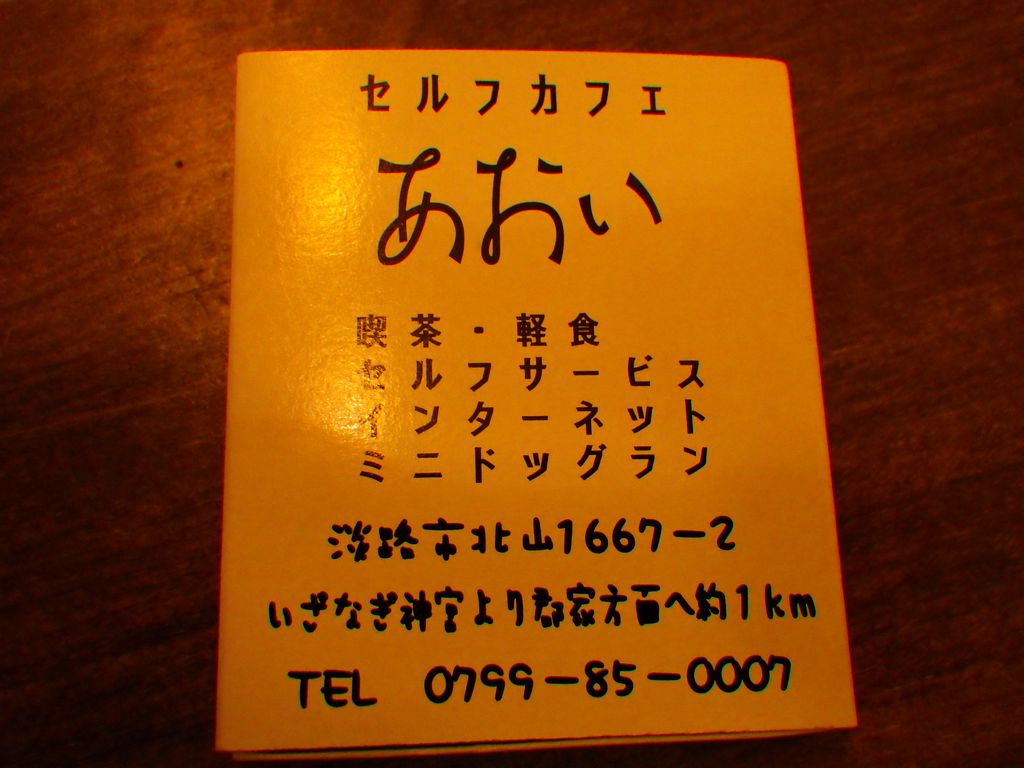 セルフカフェ
あおい
喫茶・軽食
セルフサービス
インターネット
ミニドッグラン
淡路市北山1667-2
いざなぎ神宮より郡家方面へ約1km
TEL 0799-85-0007